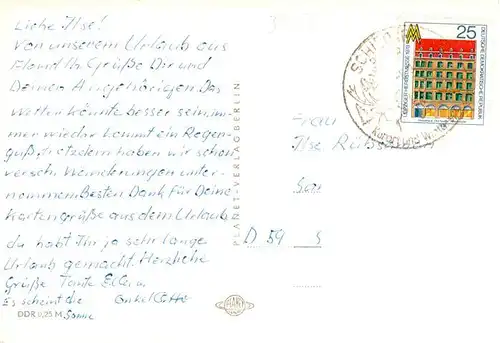 Liebe Ilse!
Von unserem Urlaub aus
Grüße Dir und
Deinen Angehörigen Das
Wetter könnte besser sein, im-
mer wieder kommt ein Regen-
guß, trotzdem haben wir schon
versch. Wanderungen unter-
nommen. Besten Dank für Deine
Kartengrüße aus dem Urlaub
du habt Ihr ja sehr lange
Urlaub gemacht. Herzliche
Grüße Tante Ella u.
Es scheint die Onkel Otto
Sonne
DDR 0,25 M
PLANET-VERLAG BERLIN
PLANET
25
DEUTSCHE DEMOKRATISCHE REPUBLIK
SCHIE
Frau
Ilse
D 59 S